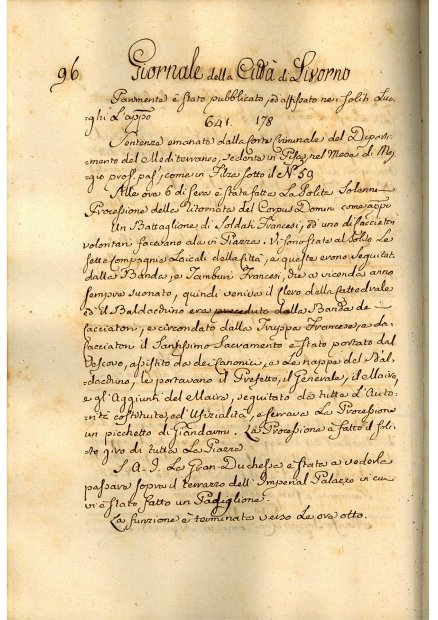 96 Giornale della Città di Livorno
Parimente è stato pubblicato, ed affissato nei soliti Luo-
ghi L'appo
641. 178
Sentenza emanata dalla Corte Criminale del Diparti-
mento del Mediterraneo, sedente in Pisa, nel Mese di Mag-
gio pros. pas; come in Filza sotto il N. 59
Alle ore 6 di sera è stata fatta La Solita Solenne
Processione della ritornata del Corpus Domini come appo
Un Battaglione di Soldati Francesi, ed uno di Cacciatori
volontari facevano ala in Piazza. Vi sono state al solito Le
sette Compagnie Laicali della Città, e queste erono seguitate
dalla Banda, e Tamburi Francesi, che a vicenda anno
sempre suonato, quindi veniva il Clero della Cattedrale
ed il Baldacchino era preceduto dalla Banda de
Cacciatori, e circondato dalla Truppa Francese, e da
Cacciatori il Santissimo Sacramento è stato portato dal
Vescovo, assistito da dei Canonici, e Le nappe del Bal-
dacchino, le portavano il Prefetto, il Generale, il Maire,
e gl'Aggiunti del Maire, seguitato da tutte L'Auto-
rità costituite, ed Ufizialità, e serrava La Processione
un picchetto di Giandarmi. La Processione à fatto il soli-
to giro di tutta La Piazza.
S. A. I. La Gran-Duchessa è stata a vederla
passare sopra il terrazzo dell'Imperial Palazzo in cui
vi è stato fatto un Padiglione.
La funzione è terminata verso Le ore otto.